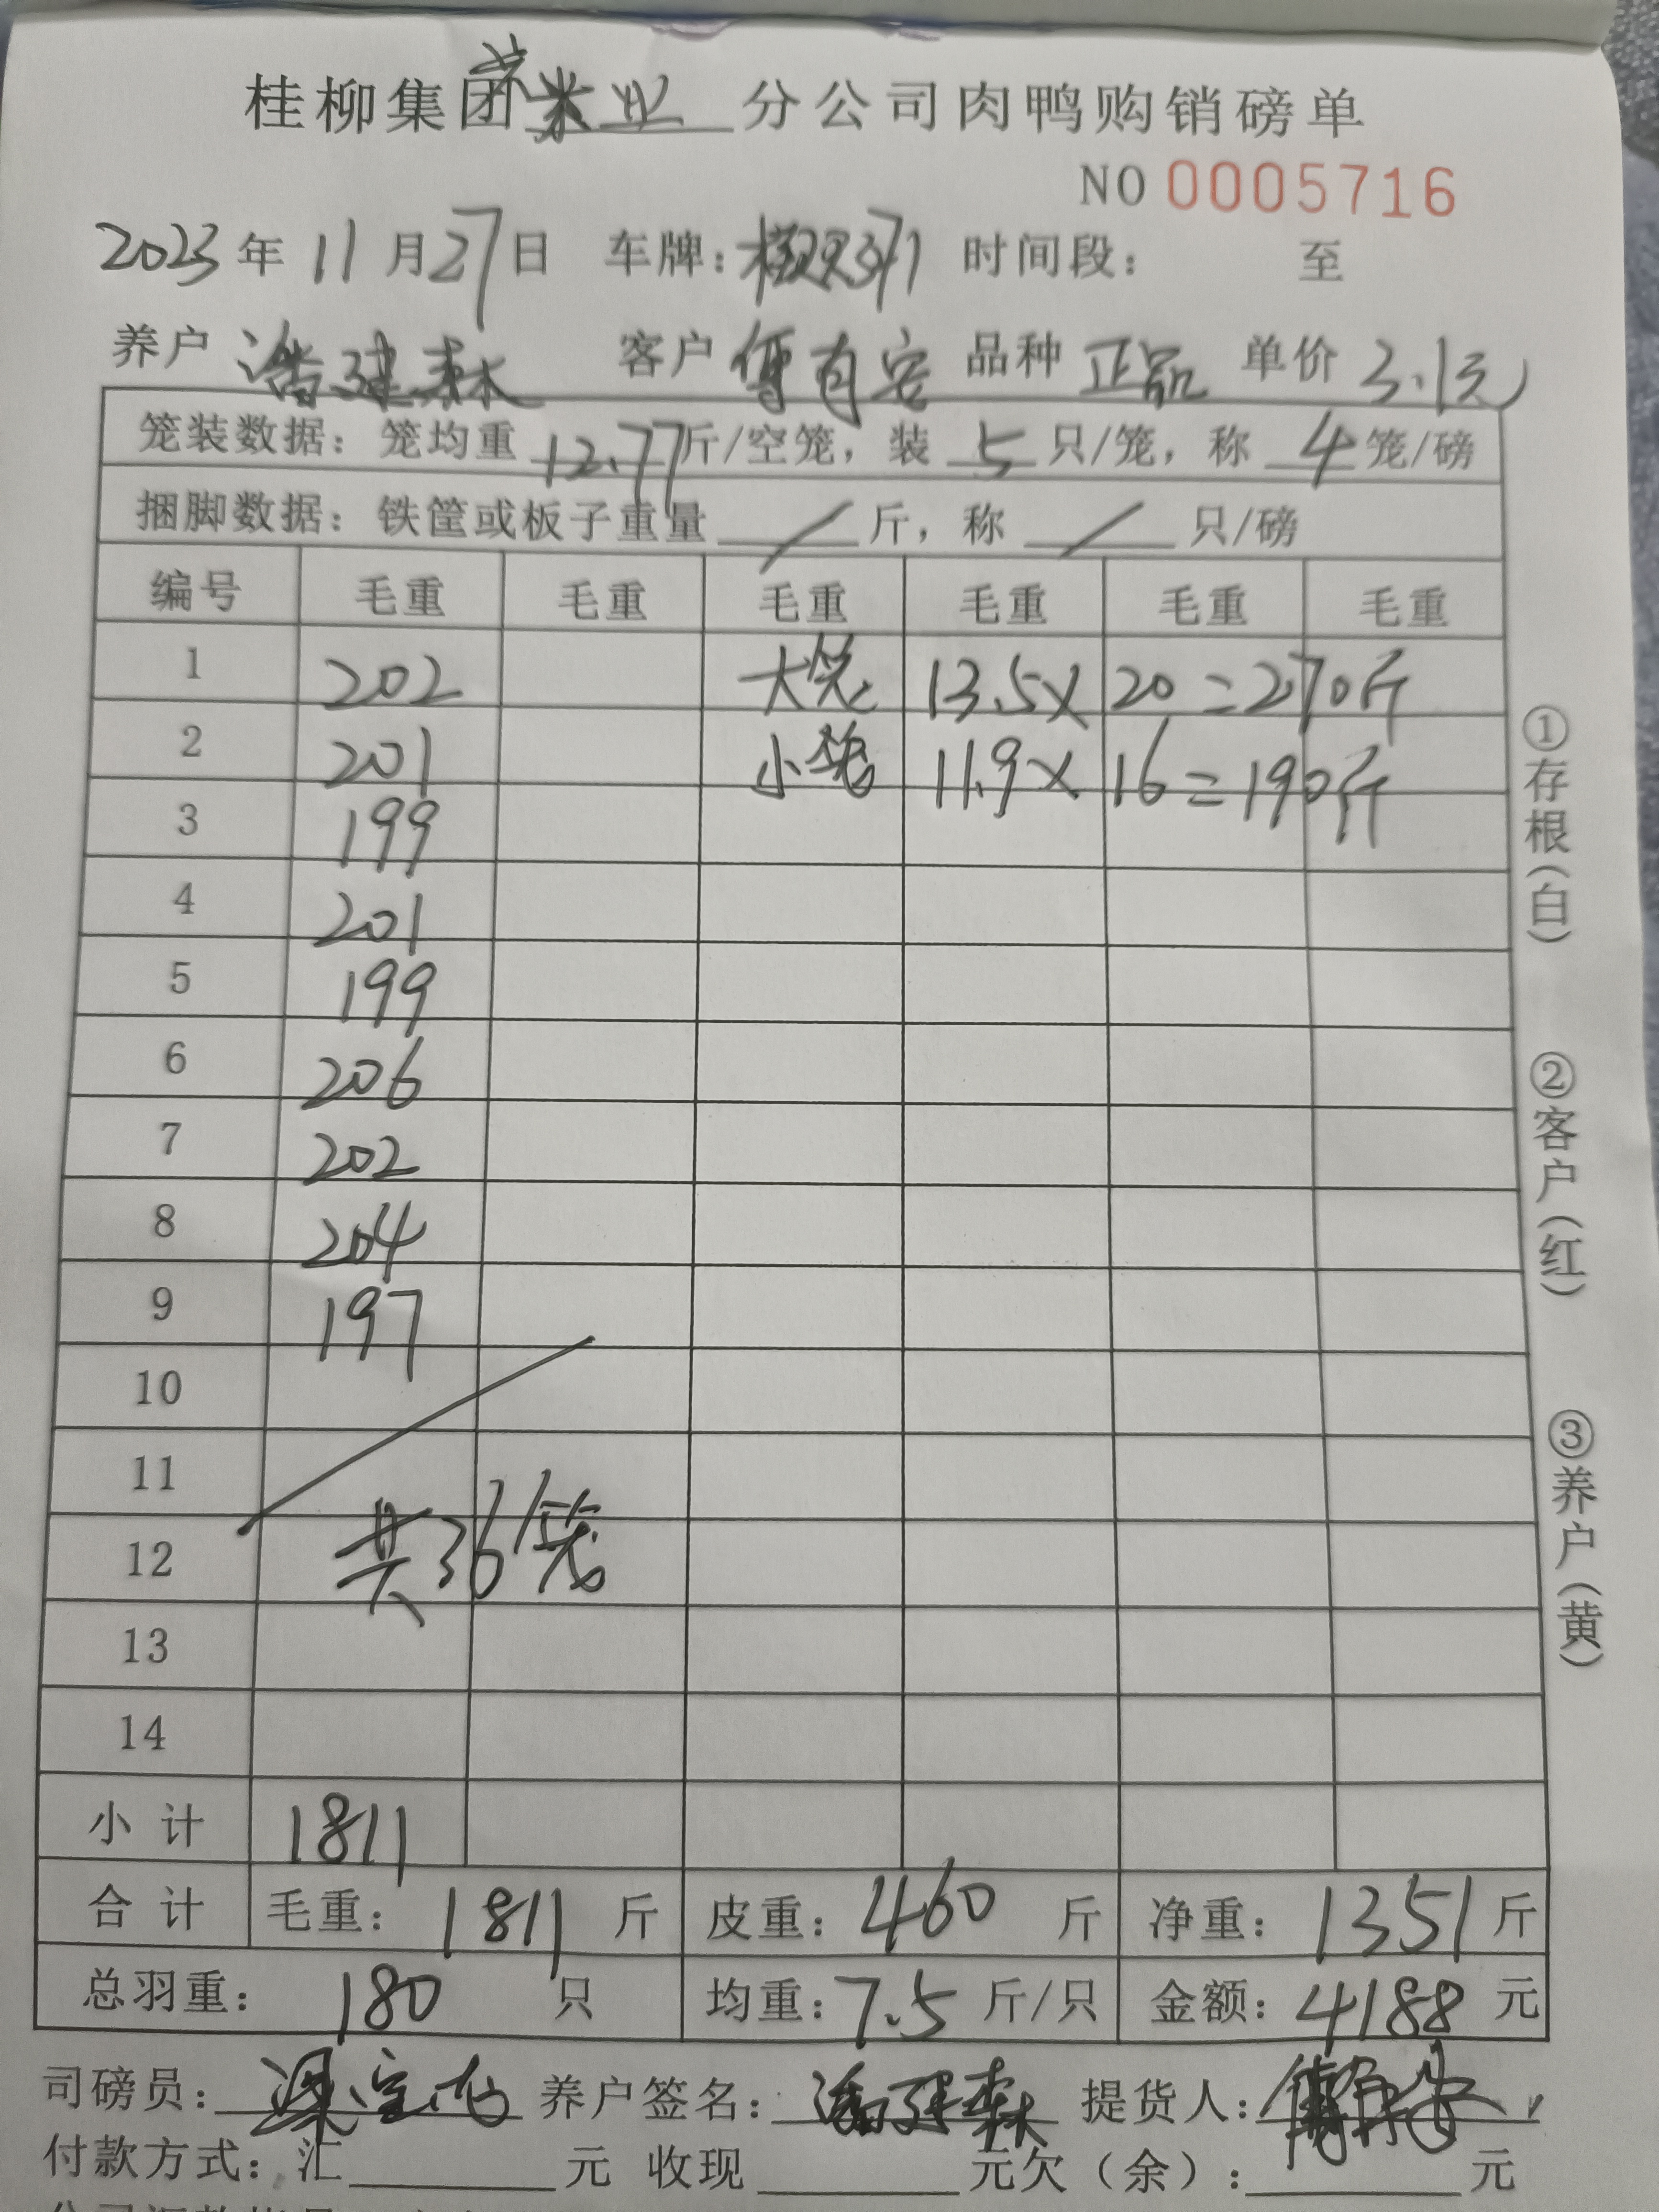 桂柳集团 业 分公司肉鸭购销磅单
NO 0005716
2023 年 11 月 27 日 车牌： 时间段： 至
养户 潘建森 客户 傅有安 品种 正品 单价 3.1元
笼装数据：笼均重 12.77 斤/空笼，装 5 只/笼，称 4 笼/磅
捆脚数据：铁筐或板子重量 / 斤，称 / 只/磅
编号 毛重 毛重 毛重 毛重 毛重 毛重
1 202 大笼 13.5× 20=270斤
2 201 小笼 11.9× 16=190斤
3 199
4 201
5 199
6 206
7 202
8 204
9 197
10
11
12 共36笼
13
14
小计 1811
合计 毛重：1811 斤 皮重：460 斤 净重：1351 斤
总羽重：180 只 均重：7.5 斤/只 金额：4188 元
司磅员： 养户签名：潘建森 提货人：
付款方式：汇 元 收现 元欠（余）： 元
①存根（白）
②客户（红）
③养户（黄）